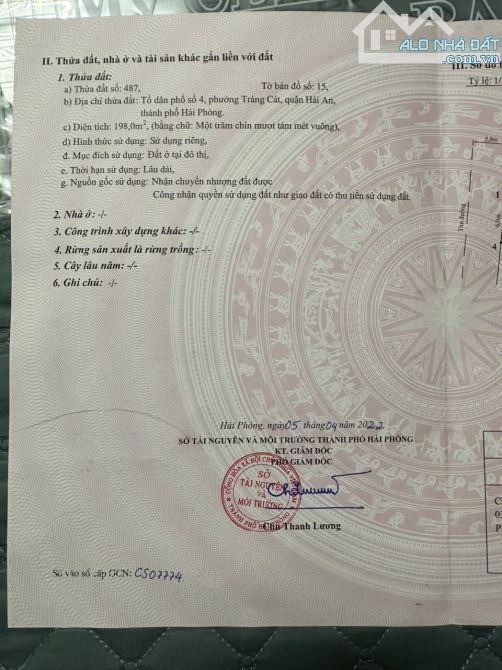 ALO NHÀ ĐẤT
.com.vn
II. Thửa đất, nhà ở và tài sản khác gắn liền với đất
III. Sơ đồ t
1. Thửa đất:
Tỷ lệ: 1/
a) Thửa đất số: 487, Tờ bản đồ số: 15,
b) Địa chỉ thửa đất: Tổ dân phố số 4, phường Tràng Cát, quận Hải An,
thành phố Hải Phòng.
c) Diện tích: 198,0m², (bằng chữ: Một trăm chín mươi tám mét vuông),
d) Hình thức sử dụng: Sử dụng riêng,
đ. Mục đích sử dụng: Đất ở tại đô thị,
e. Thời hạn sử dụng: Lâu dài,
g. Nguồn gốc sử dụng: Nhận chuyển nhượng đất được
Công nhận quyền sử dụng đất như giao đất có thu tiền sử dụng đất.
2. Nhà ở: -/-
3. Công trình xây dựng khác: -/-
4. Rừng sản xuất là rừng trồng: -/-
5. Cây lâu năm: -/-
6. Ghi chú: -/-
5,0m
1
Tim đường
4
Hải Phòng, ngày 05 tháng 04 năm 2022
SỞ TÀI NGUYÊN VÀ MÔI TRƯỜNG THÀNH PHỐ HẢI PHÒNG
KT. GIÁM ĐỐC
PHÓ GIÁM ĐỐC
CỘNG HÒA XÃ HỘI CHỦ NGHĨA VIỆT NAM
SỞ
TÀI NGUYÊN
VÀ
MÔI TRƯỜNG
THÀNH PHỐ HẢI PHÒNG
Chu Thanh Lương
C
03
P
Số vào sổ cấp GCN: CS07774